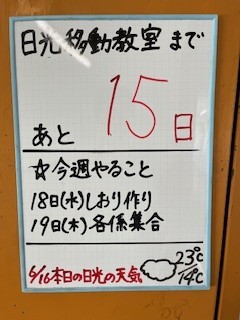 日光移動教室まで
あと15日
☆今週やること
18日(水)しおり作り
19日(木)各係集合
6/16本日の日光の天気
23℃
14℃